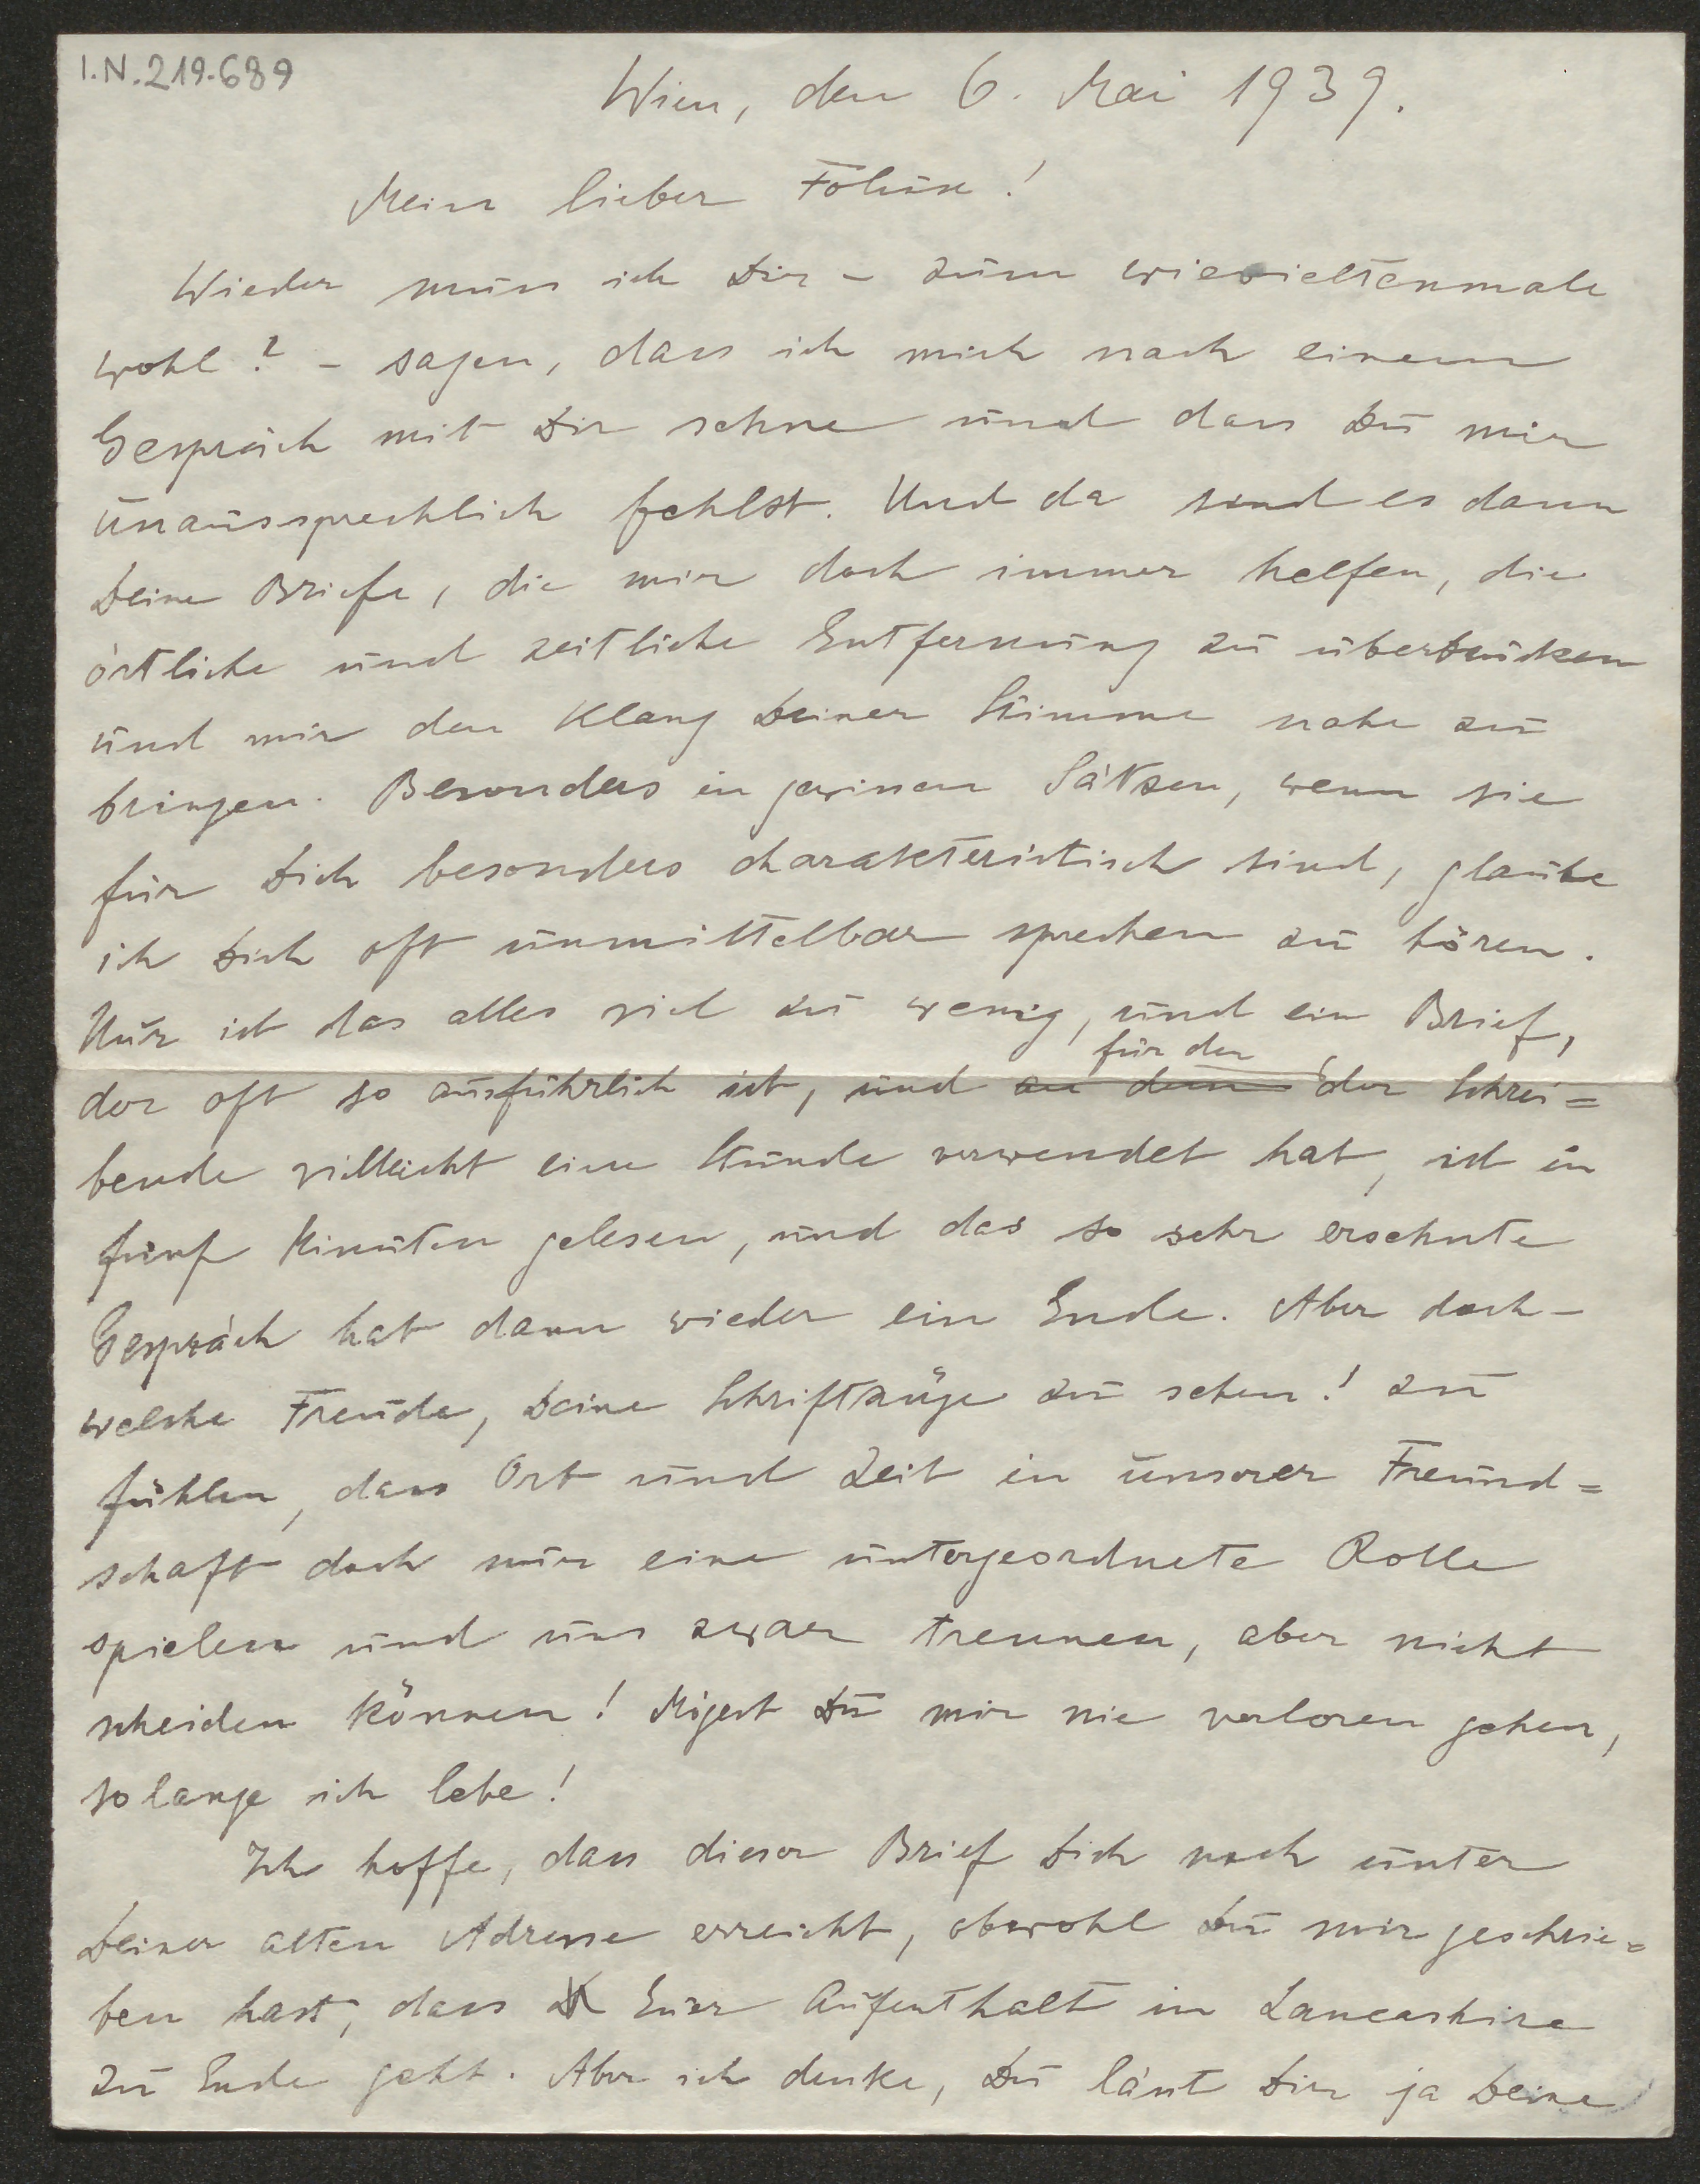 I.N.219.689
Wien, den 6. Mai 1939.
Mein lieber
Wieder muss ich Dir – zum wievieltenmale
wohl? – sagen, dass ich mich nach einem
Gespräch mit Dir sehne und dass Du mir
unaussprechlich fehlst. Und da sind es dann
Deine Briefe, die mir doch immer helfen, die
örtliche und zeitliche Entfernung zu überbrücken
und mir den Klang Deiner Stimme nahe zu
bringen. Besonders in gewissen Sätzen, wenn sie
für Dich besonders charakteristisch sind, glaube
ich Dich oft unmittelbar sprechen zu hören.
Nur ist das alles viel zu wenig, und ein Brief,
für den
der oft so ausführlich ist, und an dem der Schrei=
bende vielleicht eine Stunde verwendet hat, ist in
fünf Minuten gelesen, und das so sehr ersehnte
Gespräch hat dann wieder ein Ende. Aber doch –
welche Freude, Deine Schriftzüge zu sehen! zu
fühlen, dass Ort und Zeit in unserer Freund=
schaft doch nur eine untergeordnete Rolle
spielen und uns zwar trennen, aber nicht
scheiden können! Mögest Du mir nie verloren gehen,
solange ich lebe!
Ich hoffe, dass dieser Brief Dich noch unter
Deiner alten Adresse erreicht, obwohl Du mir geschrie=
ben hast, dass Euer Aufenthalt in Lancashire
zu Ende geht. Aber ich denke, Du lässt Dir ja Deine